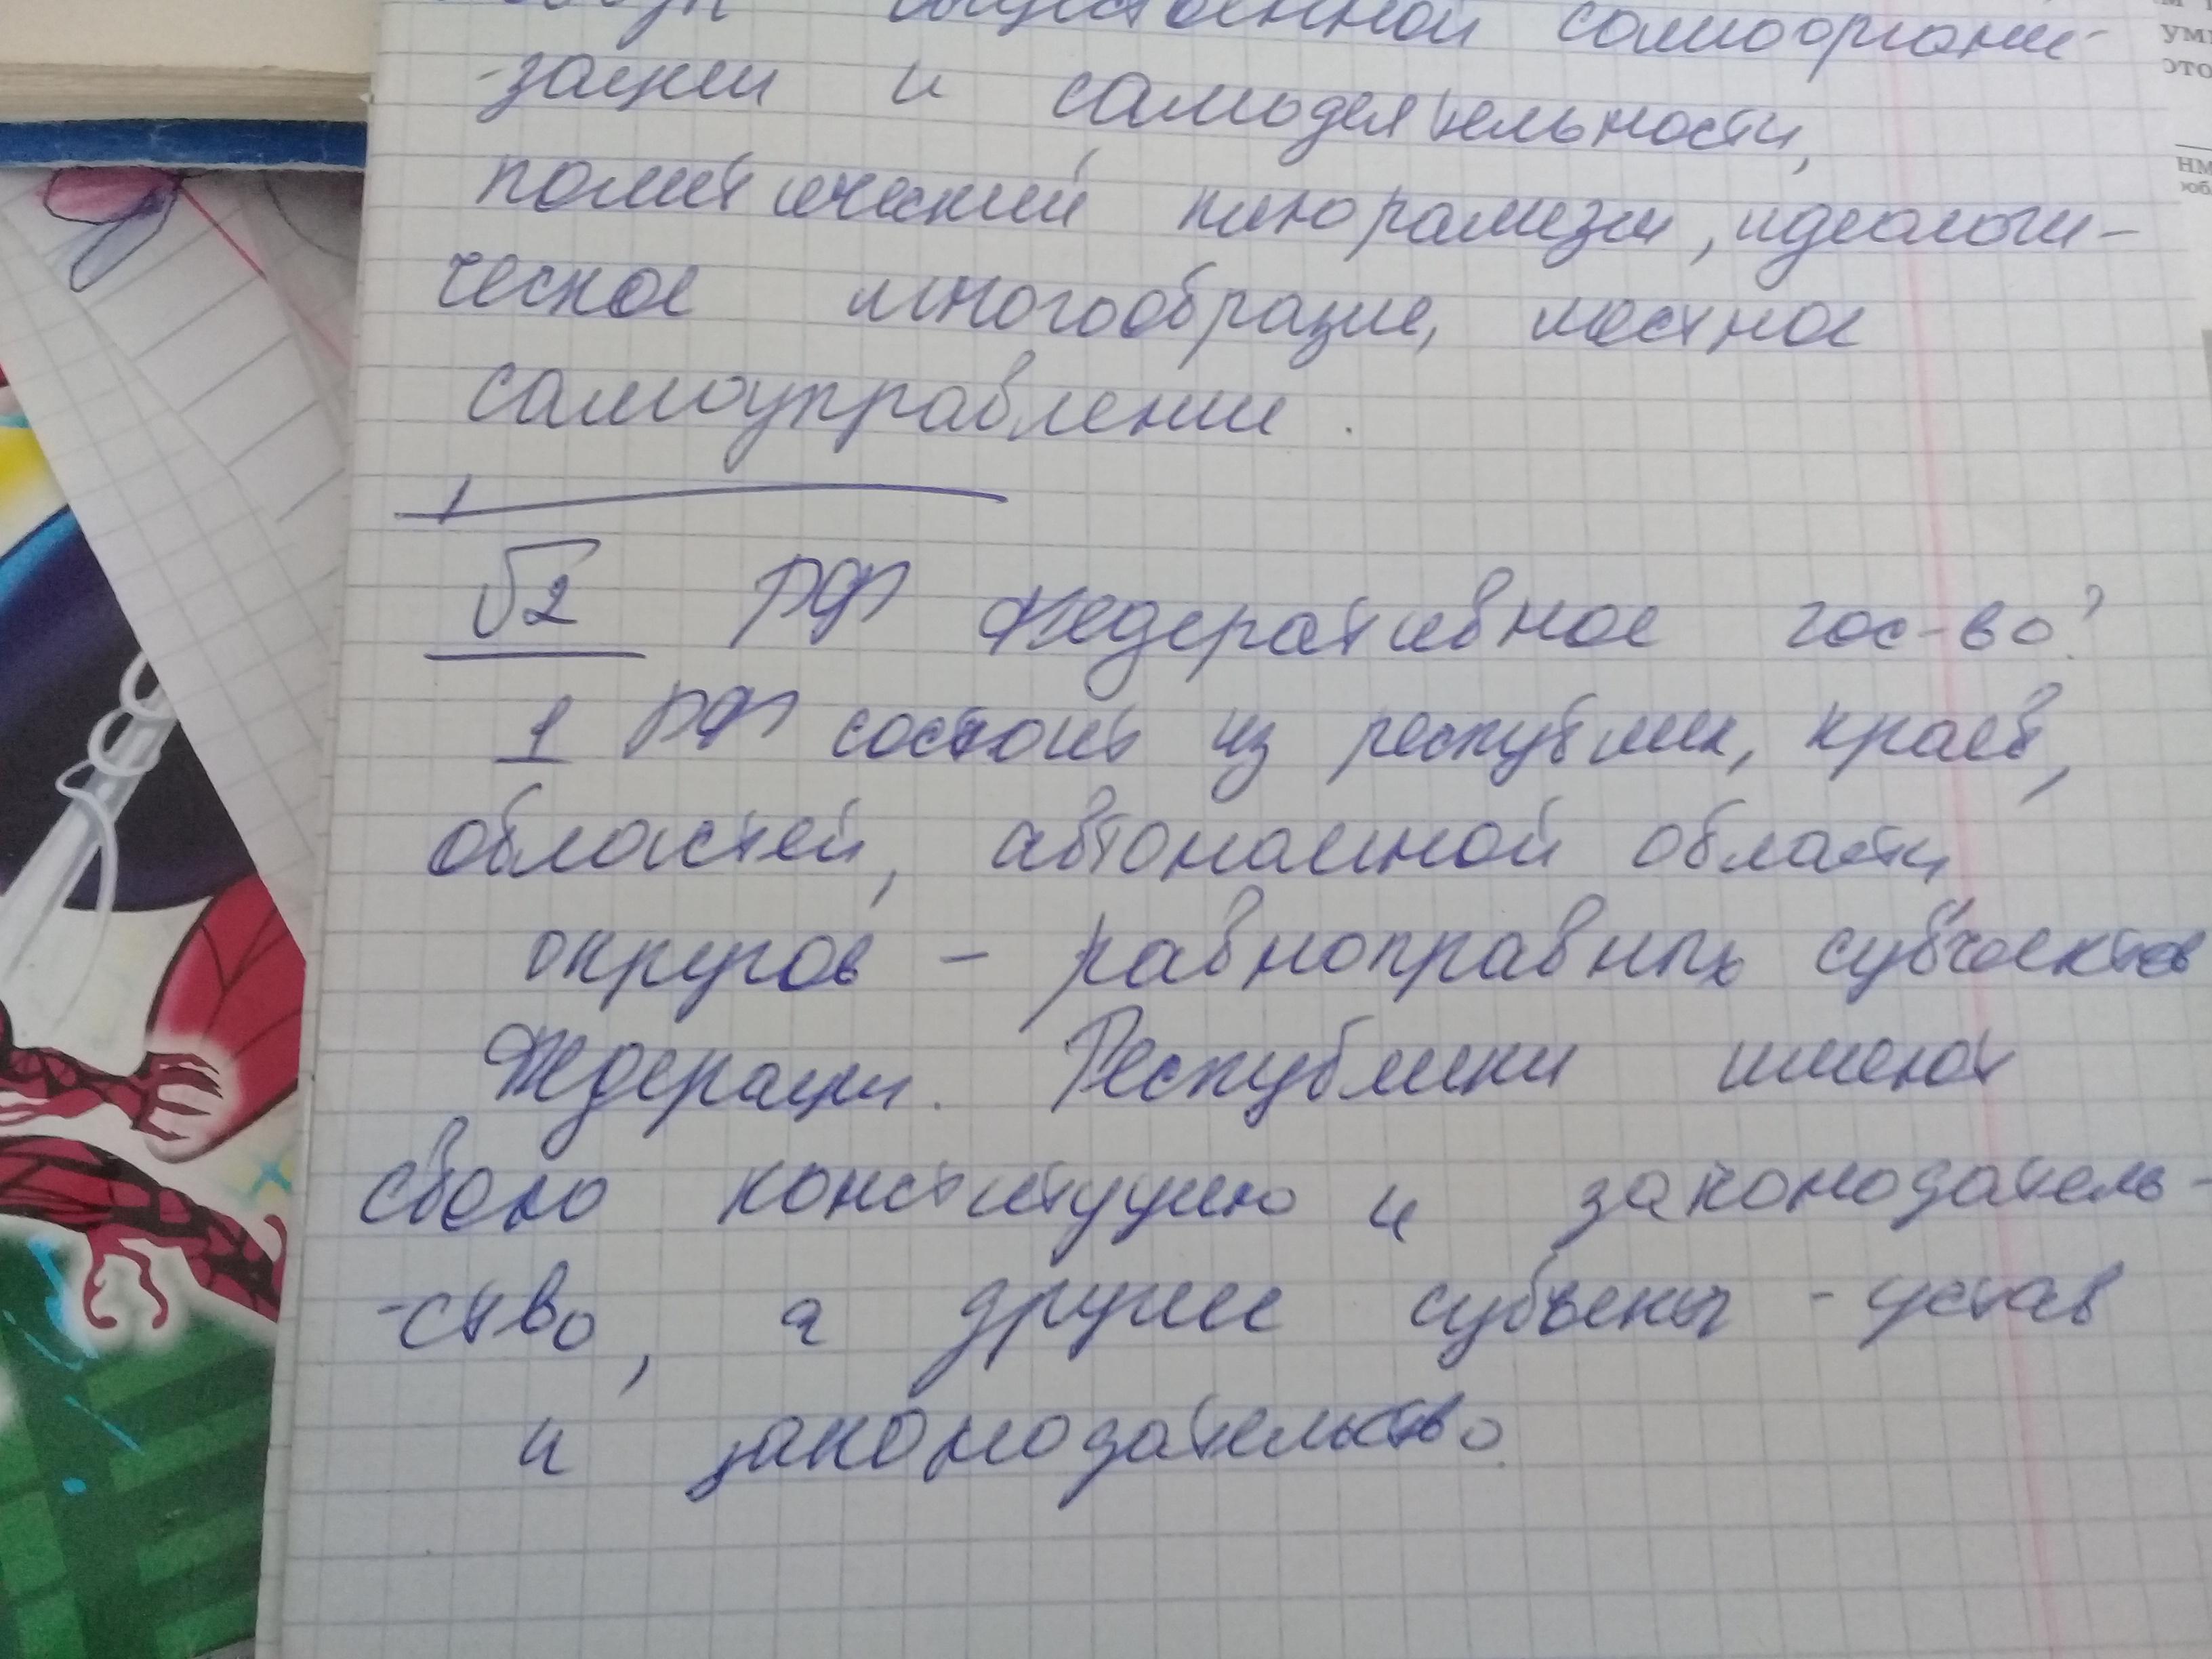 общественной самоорганि-
-зации и самодеятельности,
политический плюрализм, идеологи-
ческое многообразие, местное
самоуправлении.
√2 РФ Федеративное гос-во?
1 РФ состоит из республик, краёв,
областей, автономной области
округов - равноправных субъектов
Федерации. Республики имеют
свою конституцию и законодатель-
-ство, а другие субъекы - устав
и законодательство.